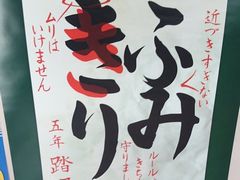 近づきすぎない
ふみ
ルール
きち
守りまし
きり
ムリは
いけません
五年 踏